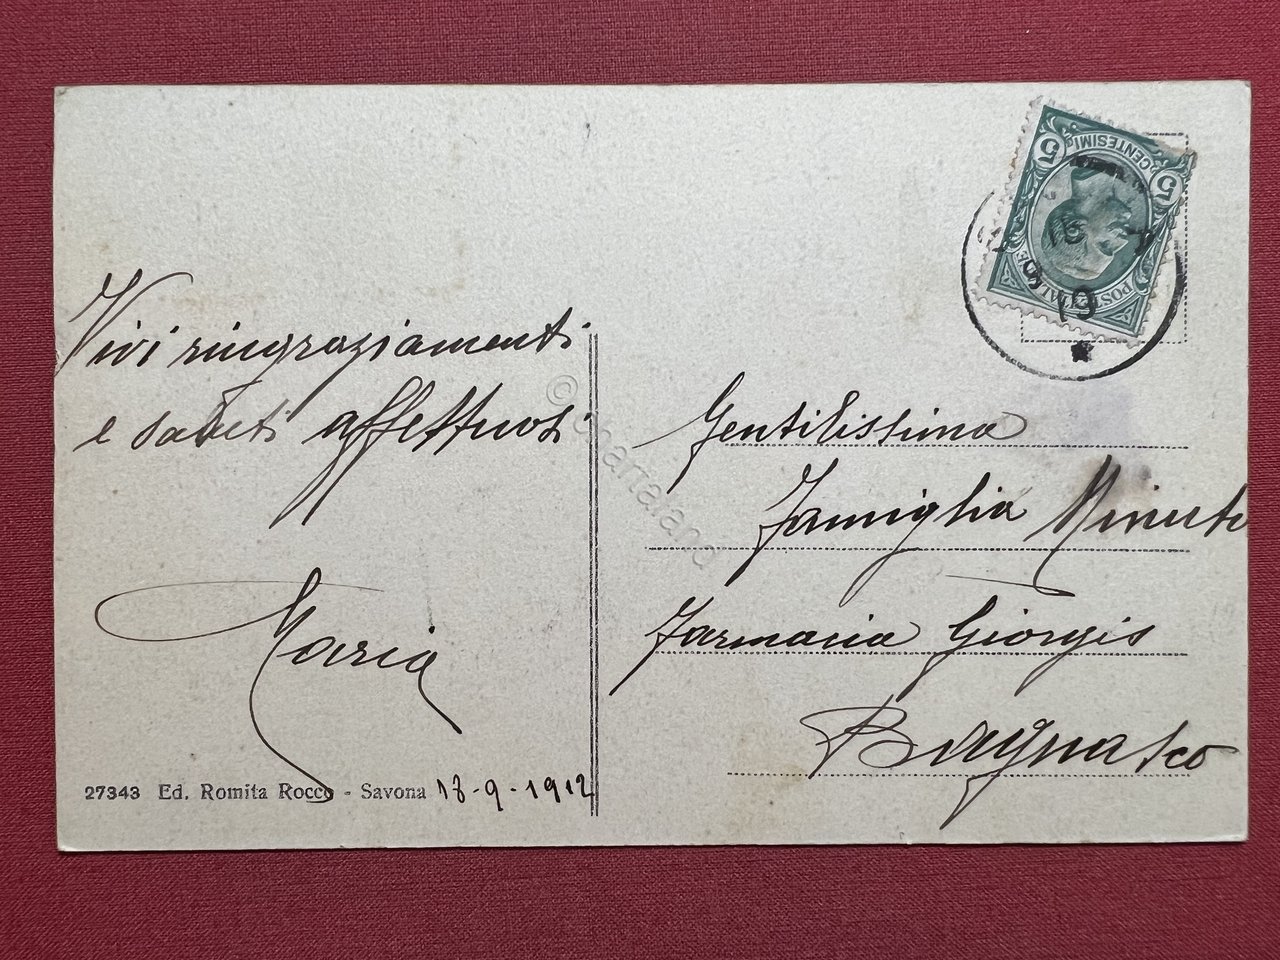 Vivi ringraziamenti
e saluti affettuosi
Maria
27343 Ed. Romita Rocco - Savona 18-9-1912
5 CENTESIMI 5
Gentilissima
Famiglia Minuto
Farmacia Giorgis
Bagnasco
© chartaland